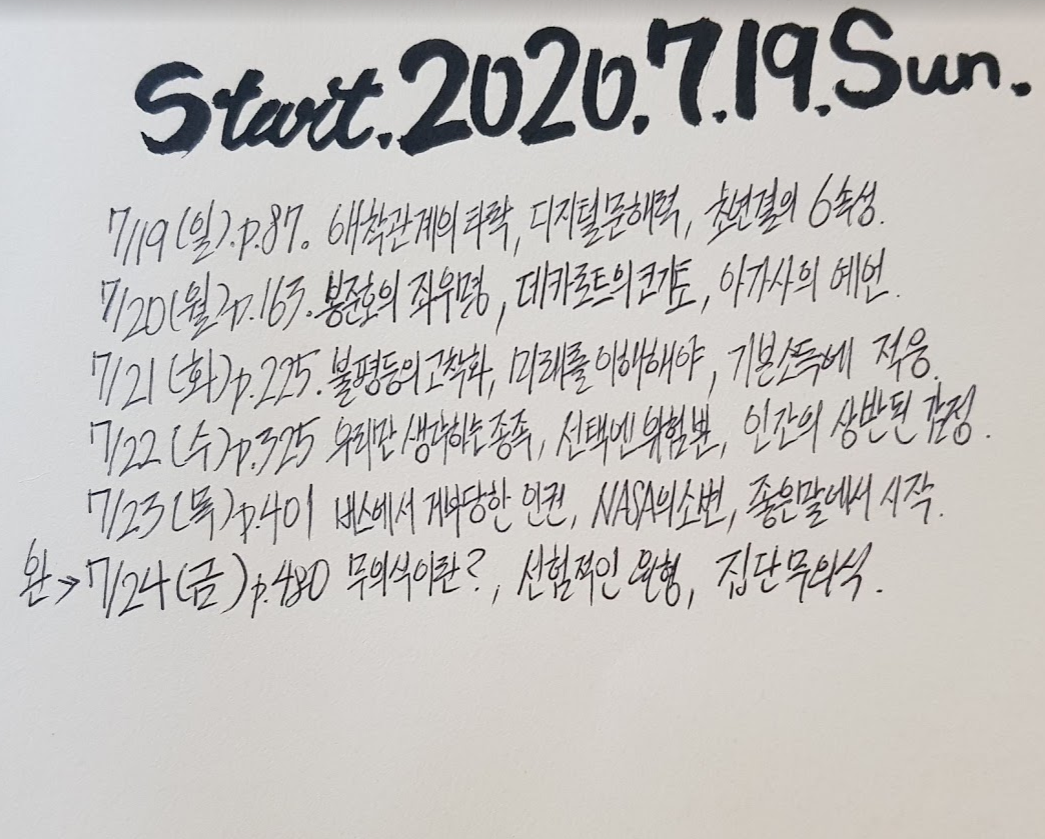 Start. 2020. 7. 19. Sun.
7/19 (일). p.87. 애착관계의 타락, 디지털문해력, 초연결의 6속성.
7/20 (월) p.163. 봉준호의 좌우명, 데카르트의 코기토, 아가사의 예언.
7/21 (화) p.225. 불평등의 고착화, 미래를 이해해야, 기본소득에 적응.
7/22 (수) p.325 우리만 생각하는 종족, 선택엔 위험뿐, 인간의 상반된 감정.
7/23 (목) p.401 버스에서 당한 인권, NASA의 소변, 좋은말에서 시작.
완 → 7/24 (금) p.480 무의식이란?, 선험적인 원형, 집단무의식.